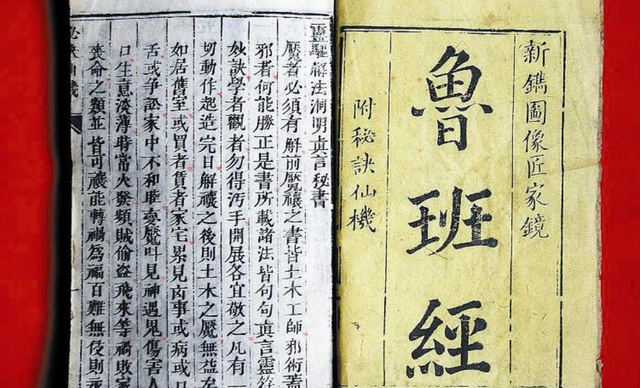 新鐫圖像匠家鏡
魯班經
附秘訣仙機
靈驅解法洞明真言秘書
魘者必須有解前魘禳之書皆土木工師邪術蓋
邪者何能勝正是書所載諸法皆句句真言靈符
妙訣學者觀者勿得汚手開展各宜敬之凡有一
切動作起造完日解禳之後則土木之魘無益矣
如居舊室或買者賃者家宅累見㐫事或病或口
舌或爭訟家中不和睡夢魘叫見神遇鬼傷害人
口生意淡薄時常火發頻賊偷盜飛來等禍敗家
喪命之類並皆可禳能轉禍爲福百難無侵則
訣仙機